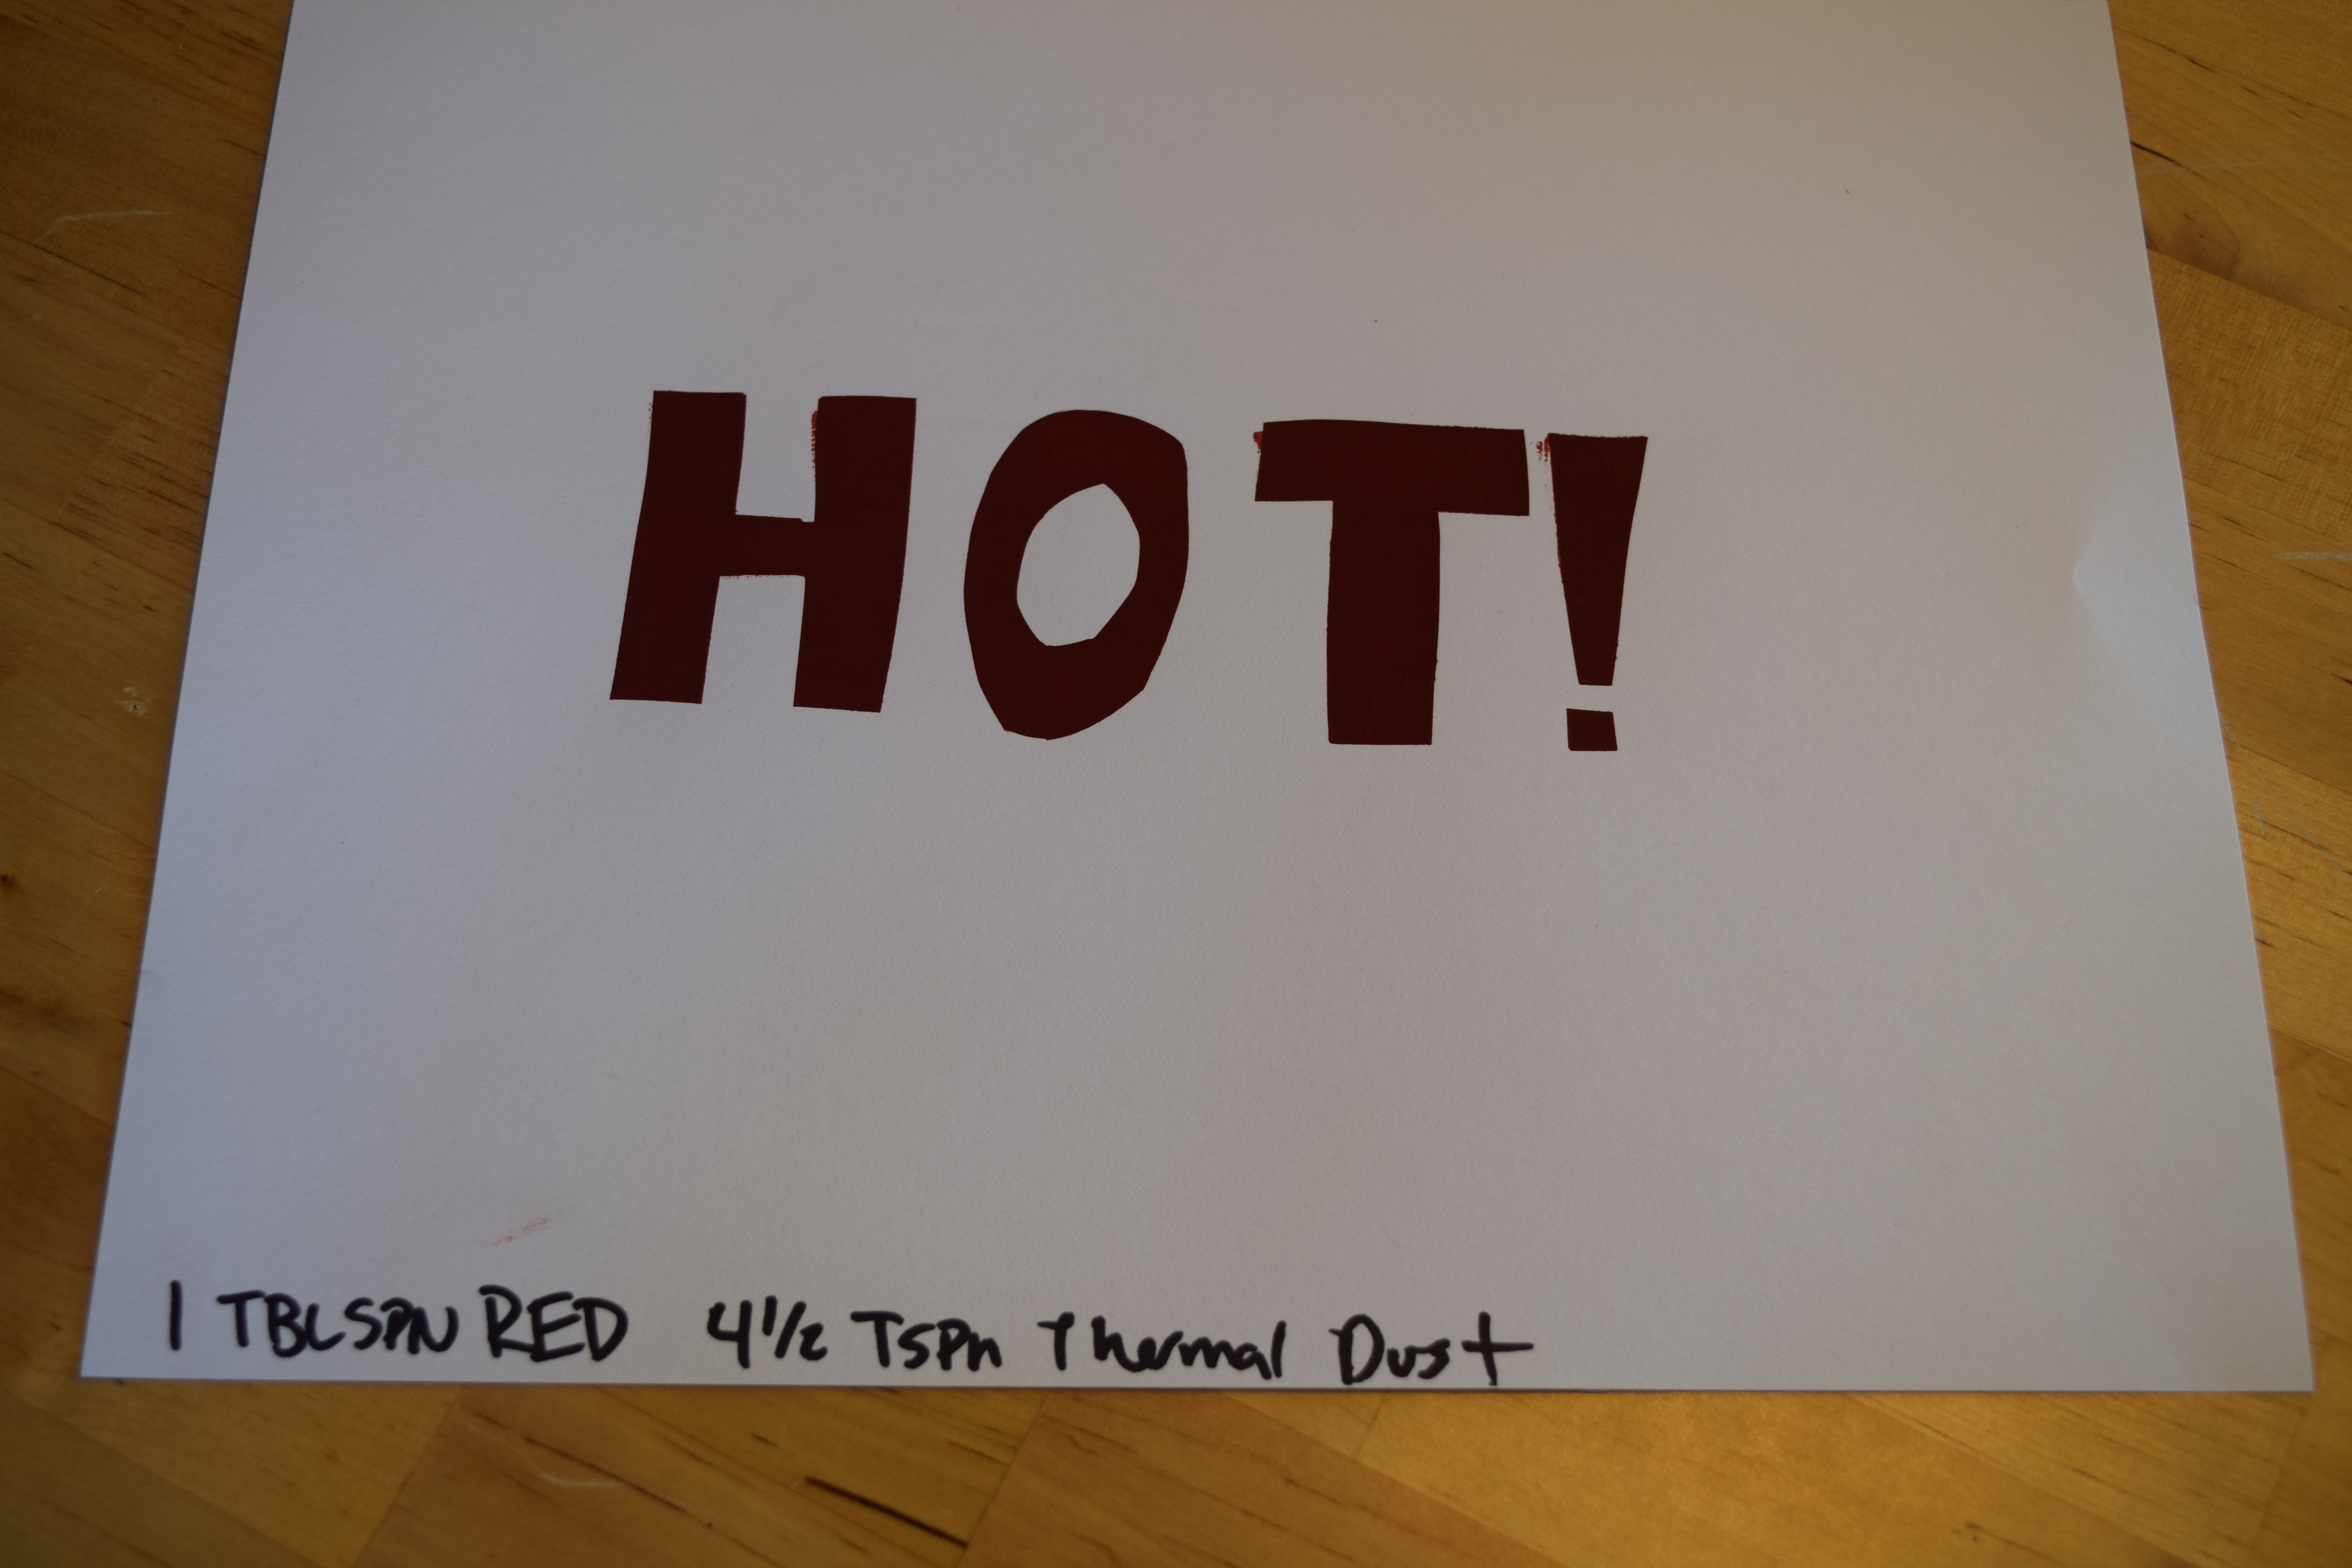 HOT!
1 TBLSPN RED 4 1/2 TSPn Thermal Dust